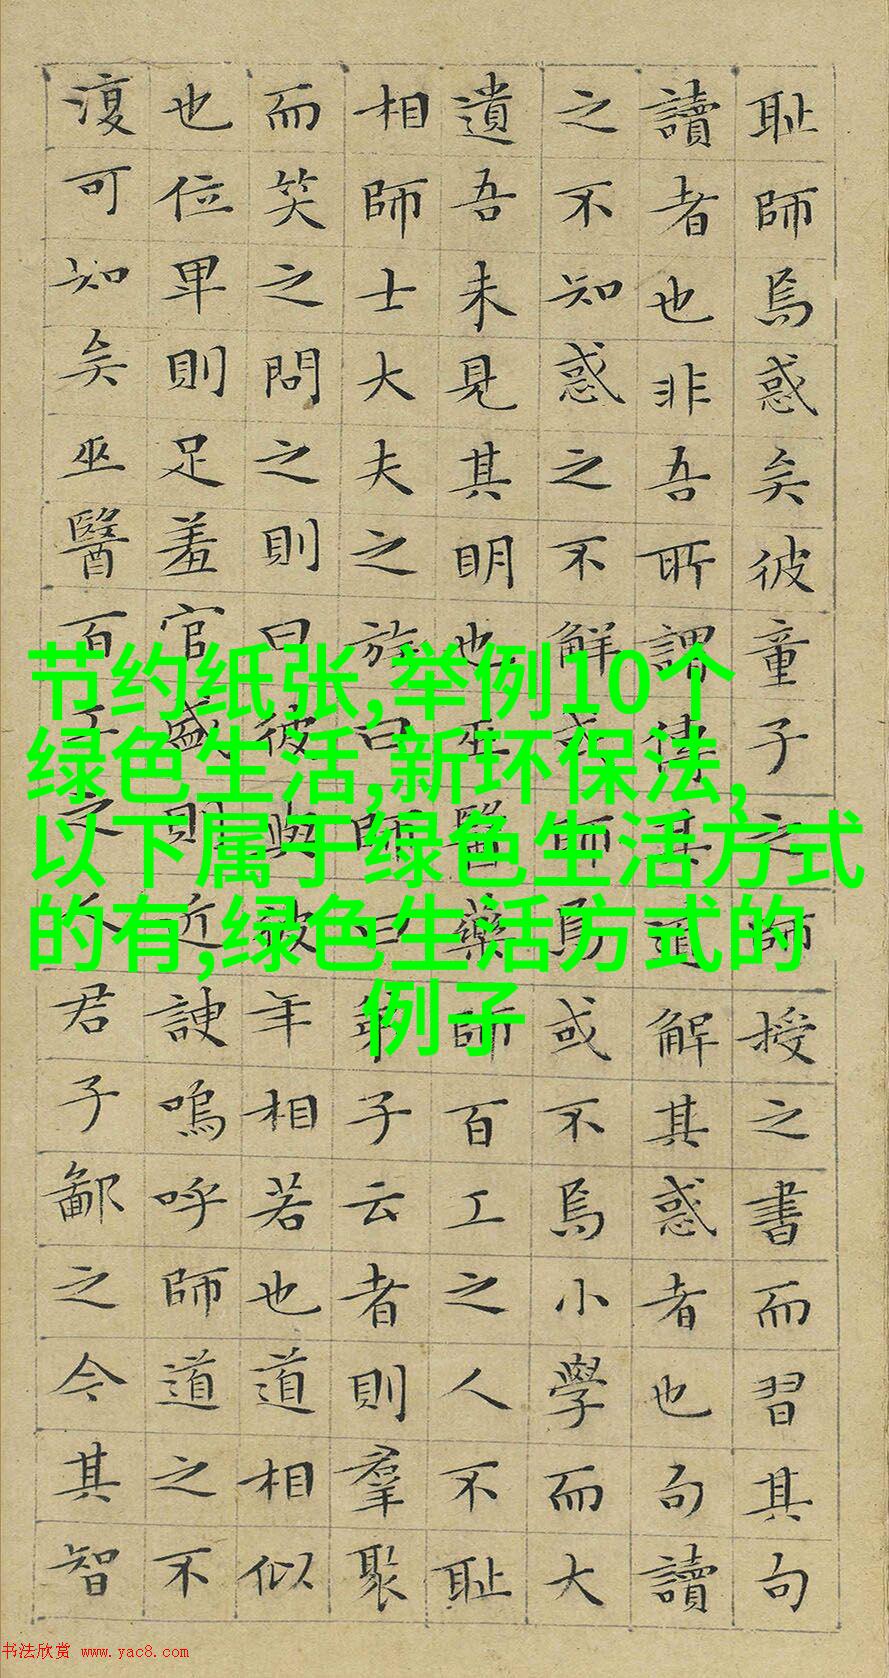 耻師焉惑矣彼童子之師授之書而習其句
讀者也非吾所謂傳其道解其惑者也句讀
之不知惑之不解或師焉或不焉小學而大
遺吾未見其明也巫醫藥師百工之人不耻
相師士大夫之族曰師曰弟子云者則羣聚
而笑之問之則曰彼與彼年相若也道相似
也位卑則足羞官盛則近諛嗚呼師道之不
復可知矣巫醫百工之人君子鄙之今其智
节约纸张,举例10个
绿色生活,新环保法,
以下属于绿色生活方式
的有,绿色生活方式的
例子
书法欣赏 www.yac8.com